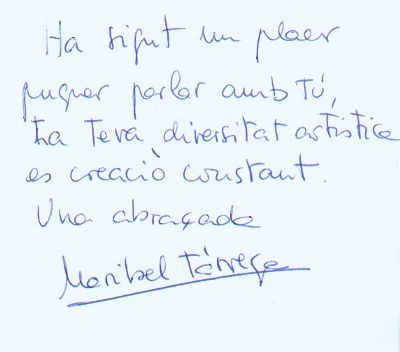 Ha sigut un plaer
puguer parlar amb tú,
La Teva diversitat artística
es creaciò constant.
Una abraçada
Maribel Tàrrega